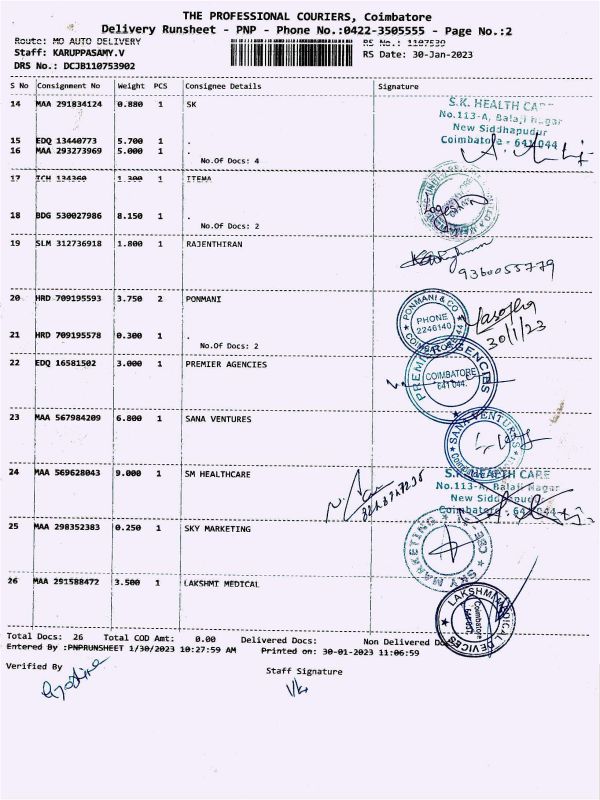 THE PROFESSIONAL COURIERS, Coimbatore
Delivery Runsheet - PNP - Phone No.:0422-3505555 - Page No.:2
Route: MO AUTO DELIVERY
RS No.: 1107539
Staff: KARUPPASAMY.V
RS Date: 30-Jan-2023
DRS No.: DCJB110753902
S No Consignment No Weight PCS Consignee Details Signature
14 MAA 291834124 0.880 1 SK
S.K. HEALTH CARE
No.113-A, Balaji Nagar
New Siddhapudur
Coimbatore - 641 044
15 EDQ 13440773 5.700 1 .
16 MAA 293273969 5.000 1 .
No.Of Docs: 4
17 ICH 134360 1.300 1 ITEMA
18 BDG 530027986 8.150 1 .
No.Of Docs: 2
19 SLM 312736918 1.800 1 RAJENTHIRAN
9360055779
20 HRD 709195593 3.750 2 PONMANI
PONMANI & CO
PHONE
2246140
30/1/23
21 HRD 709195578 0.300 1 .
No.Of Docs: 2
22 EDQ 16581502 3.000 1 PREMIER AGENCIES
PREMIER AGENCIES
COIMBATORE
641 044.
23 MAA 567984209 6.800 1 SANA VENTURES
SANA VENTURES
24 MAA 569628043 9.000 1 SM HEALTHCARE
S.K. HEALTH CARE
No.113-A, Balaji Nagar
New Siddhapudur
Coimbatore - 641 044
25 MAA 298352383 0.250 1 SKY MARKETING
SKY MARKETING CBE
26 MAA 291588472 3.500 1 LAKSHMI MEDICAL
LAKSHMI MEDICAL DEVICES
Coimbatore
Total Docs: 26 Total COD Amt: 0.00 Delivered Docs: Non Delivered Docs
Entered By :PNPRUNSHEET 1/30/2023 10:27:59 AM Printed on: 30-01-2023 11:06:59
Verified By
Staff Signature